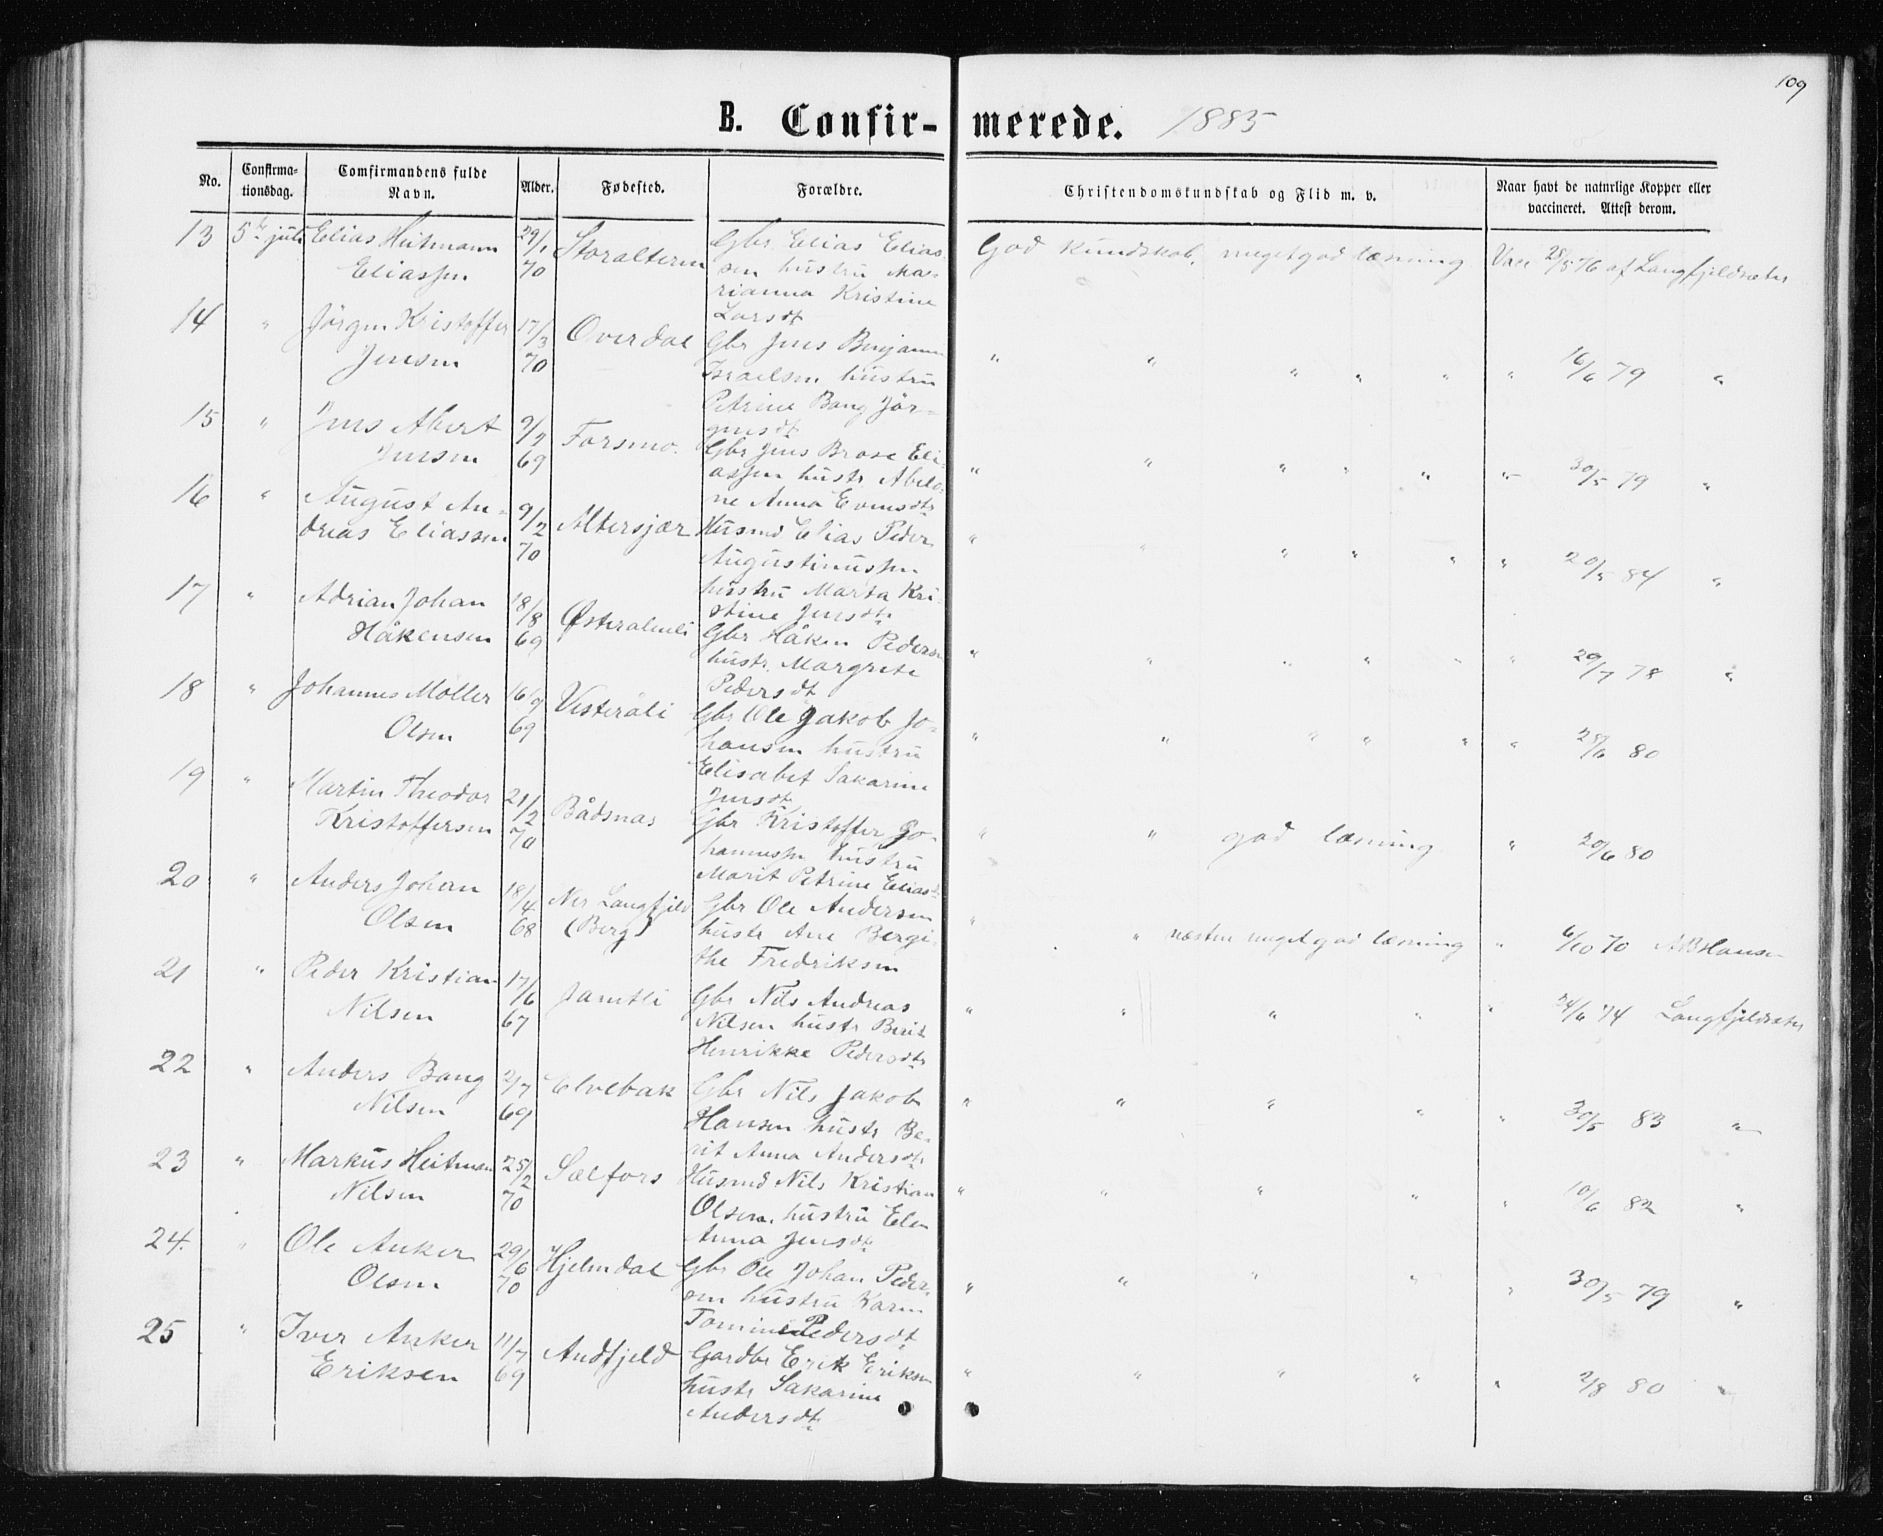 109
B. Confir- merede. 1885
No. Confirma-tionsdag. Comfirmandens fulde Navn. Alder. Fødested. Forældre. Christendomskundskab og Flid m. v. Naar havt de naturlige Kopper eller vaccineret. Attest derom.
13 5te juli Elias Heitmann 29/1 Storalteren Gbr Elias Elias- God Kundskab. meget god læsning Vacc 28/5 76 af Langfjeldsæter
Eliassen 70 sen hustru Ma-
rianna Kristine
Larsdt
14 " Jörgen Kristoffer 17/3 Overdal Gbr Jens Benjamin " " " " " " 16/6 79 "
Jensen 70 Israelsen hustru
Petrine Bang Jör-
gensdt
15 " Jens Abert 9/2 Forsmo. Gbr Jens Brose Eli- " " " " " " 30/5 79 "
Jensen 69 assen hustr Abelo-
ne Anna Evensdtr
16 " August An- 9/2 Altersjær Husmd Elias Peder " " " " " " 20/5 84 "
dreas Eliassen 70 Augustinussen
hustru Marta Kri-
stine Jensdtr
17 " Adrian Johan 18/8 Østeralmli Gbr Håken Pedersen " " " " " " 29/7 78 "
Håkensen 69 hustr. Margrete
Pedersdt
18 " Johannes Möller 16/9 Vesteråli Gbr Ole Jakob Jo- " " " " " " 28/6 80
Olsen 69 hansen hustru
Elisabet Sakarine
Jensdt
19 " Martin Theodor 21/2 Bådsnes Gbr Kristoffer Jo- " " god læsning " 20/6 80
Kristoffersen 70 hannessen hustru
Marit Petrine Eliasdt
20 " Anders Johan 18/4 Ner Langfjeld Gbr Ole Andersen " " næsten meget god læsning " 6/10 70 ABHansen
Olsen 68 (Berg) hustr Ane Bergi-
the Fredriksen
21 " Peder Kristian 17/6 Jamtli Gbr Nils Andreas " " " " " 24/6 74 Langfjeldsæter
Nilsen 67 Nilsen hustr Berit
Henrikke Pedersdtr
22 " Anders Bang 2/7 Elvebak Gbr Nils Jakob " " " " " 30/5 83 "
Nilsen 69 Hansen hustr Be-
rit Anna Andersdtr
23 " Markus Heitman 25/2 Sælfors Husmd Nils Kristian " " " " " 10/6 82 "
Nilsen 70 Olsen. hustru Elen
Anna Jensdt
24. " Ole Anker 29/6 Hjelmdal Gbr Ole Johan Peder- " " " " " 30/5 79 "
Olsen 70 sen hustru Karen
Tomine Pedersdt
25 " Iver Anker 11/7 Andfjeld Gardbr Erik Eriksen " " " " " 2/8 80 "
Eriksen 69 hustr Sakarine
Andersdtr